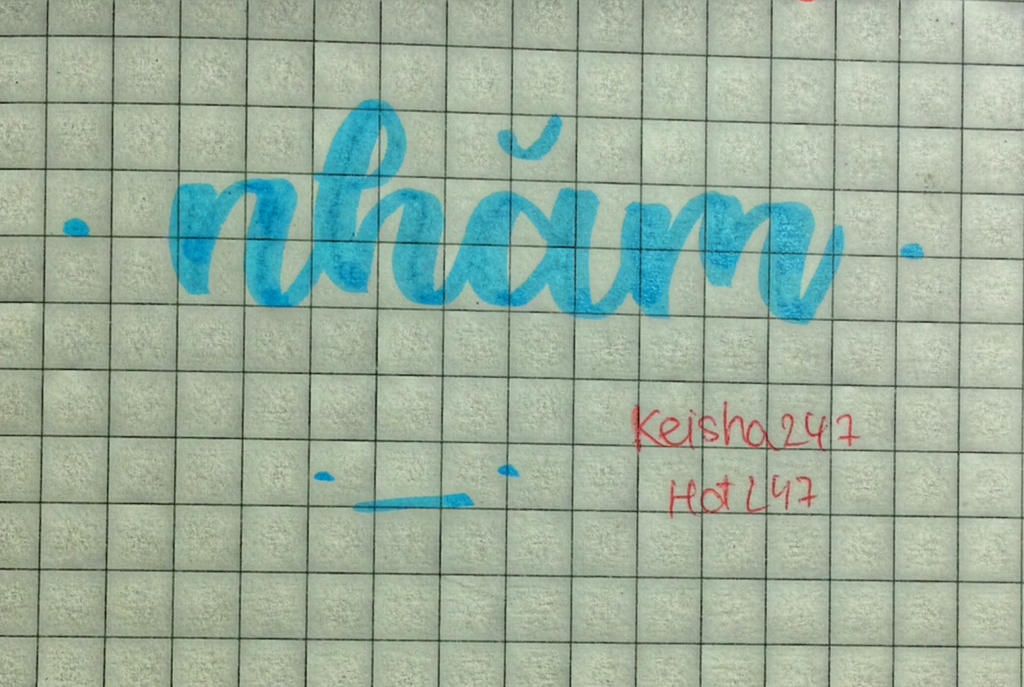 nhăm
Keisha247
Hot247